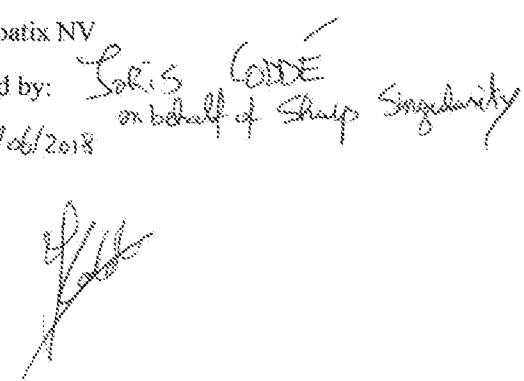 patix NV
d by: JORIS CODDÉ
on behalf of Sharp Singularity
/06/2018